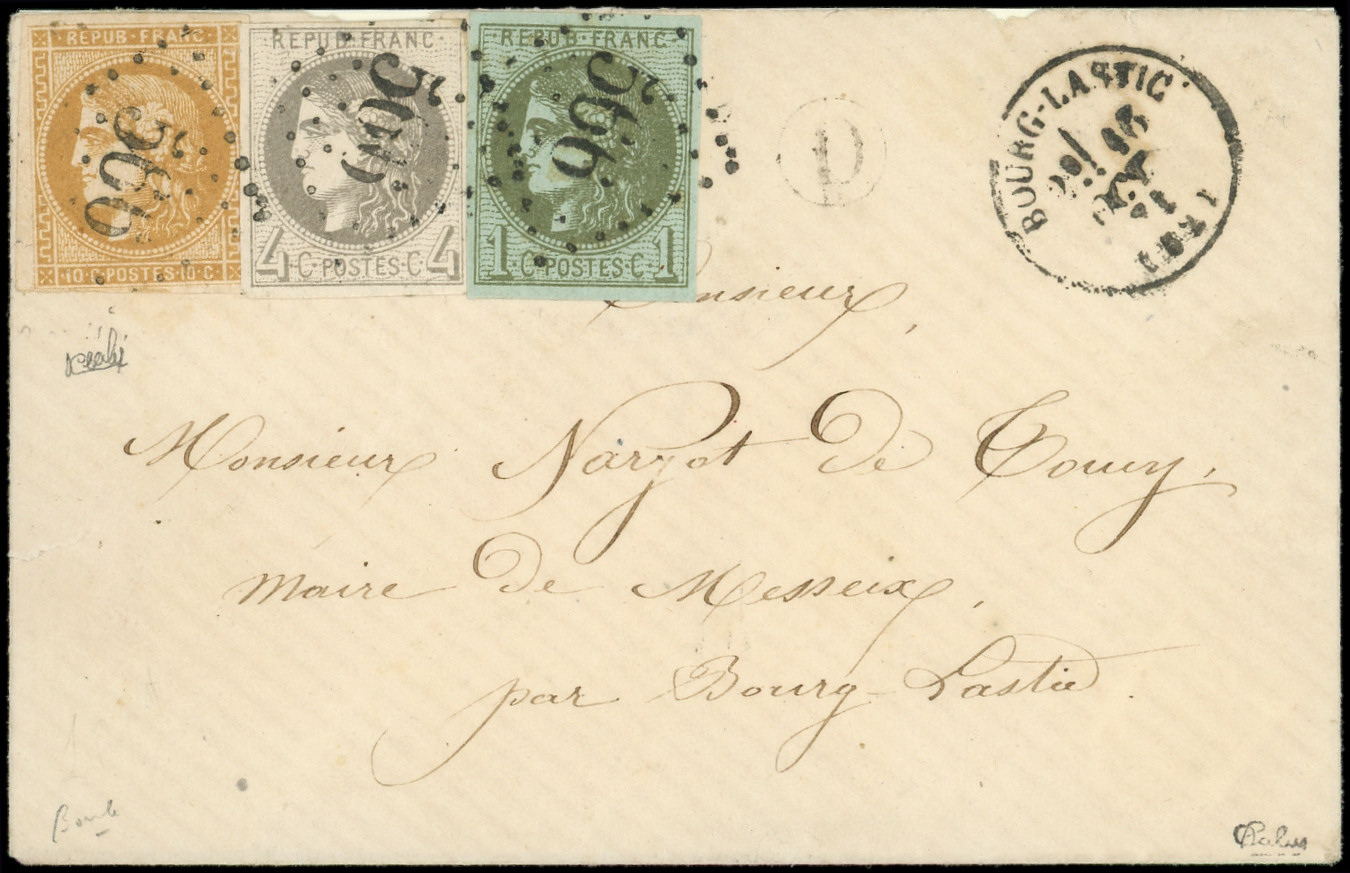 REPUB·FRANC
10·C·POSTES·10·C
REPUB·FRANC
4 C·POSTES·C· 4
REPUB·FRANC
1 C·POSTES·C· 1
D
BOURG-LASTIC
16
71
Monsieur,
Monsieur Nargot de Toury,
Maire de Messeix,
par Bourg-Lastic.
Calves